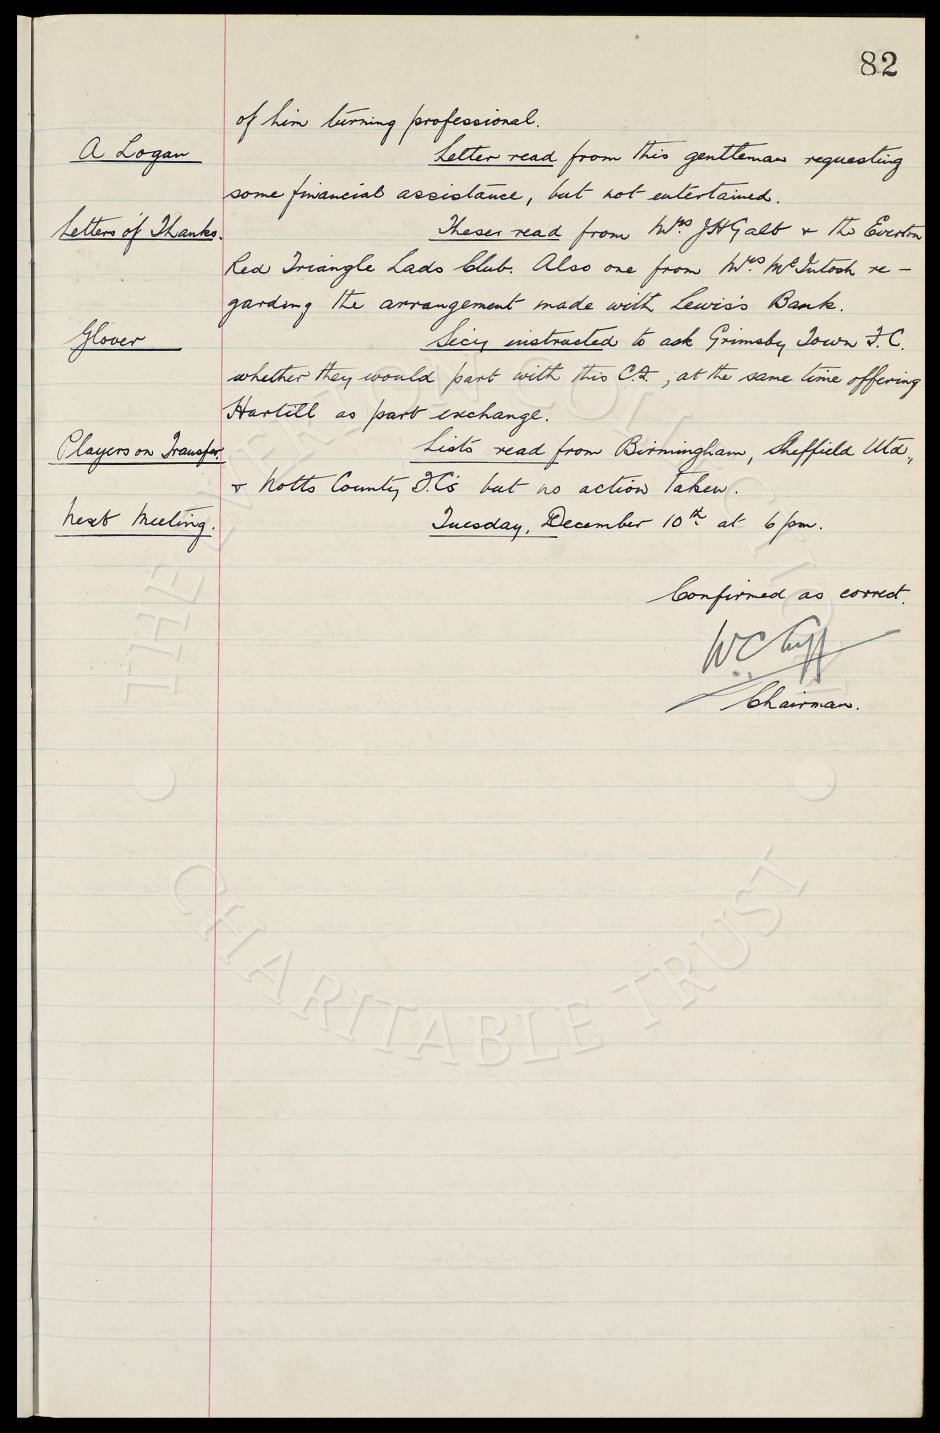 82
of him turning professional.
A Logan Letter read from this gentleman requesting
some financial assistance, but not entertained.
Letters of Thanks. Theser read from Mrs J H Galt & the Everton
Red Triangle Lads Club. Also one from Mrs McIntosh re-
garding the arrangement made with Lewis's Bank.
Glover Secy instructed to ask Grimsby Town F.C.
whether they would part with this C.F., at the same time offering
Hartill as part exchange.
Players on Transfer. Lists read from Birmingham, Sheffield Utd.,
& Notts County F.C's but no action taken.
Next Meeting. Tuesday, December 10th at 6 pm.
Confirmed as correct.
W.C. Cuff
Chairman.
THE EVERTON COLLECTION
CHARITABLE TRUST